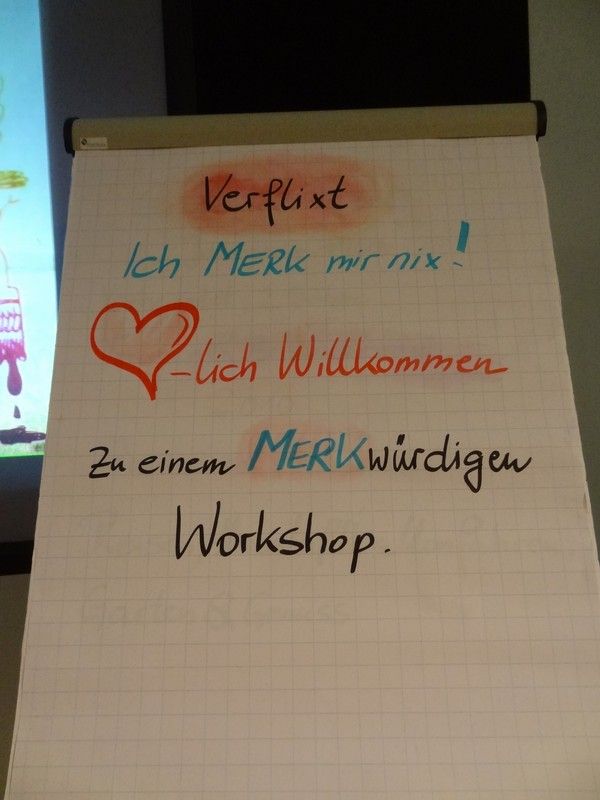 Verflixt
Ich MERK mir nix!
-lich Willkommen
Zu einem MERKwürdigen
Workshop.